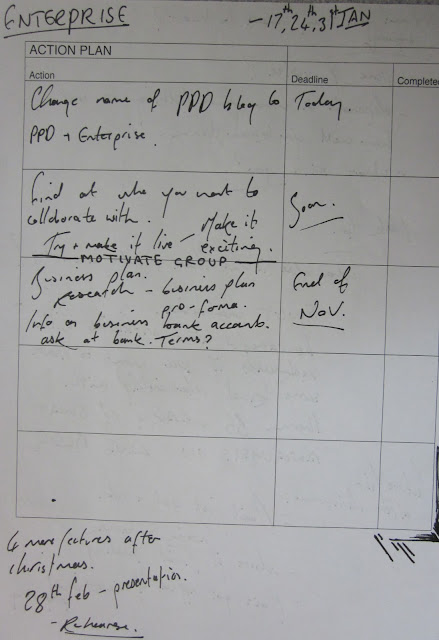 ENTERPRISE
- 17th, 24th, 31st JAN
ACTION PLAN
Action Deadline Completed
Change name of PPD blog to Today.
PPD + Enterprise.
Find out who you want to Soon.
collaborate with.
Try + make it live - Make it
exciting.
MOTIVATE GROUP
Business Plan. End of
Research - business plan NOV.
pro-forma.
Info on business bank accounts.
ask at bank. Terms?
4 more lectures after
christmas.
28th feb - presentation.
- Rehearse.